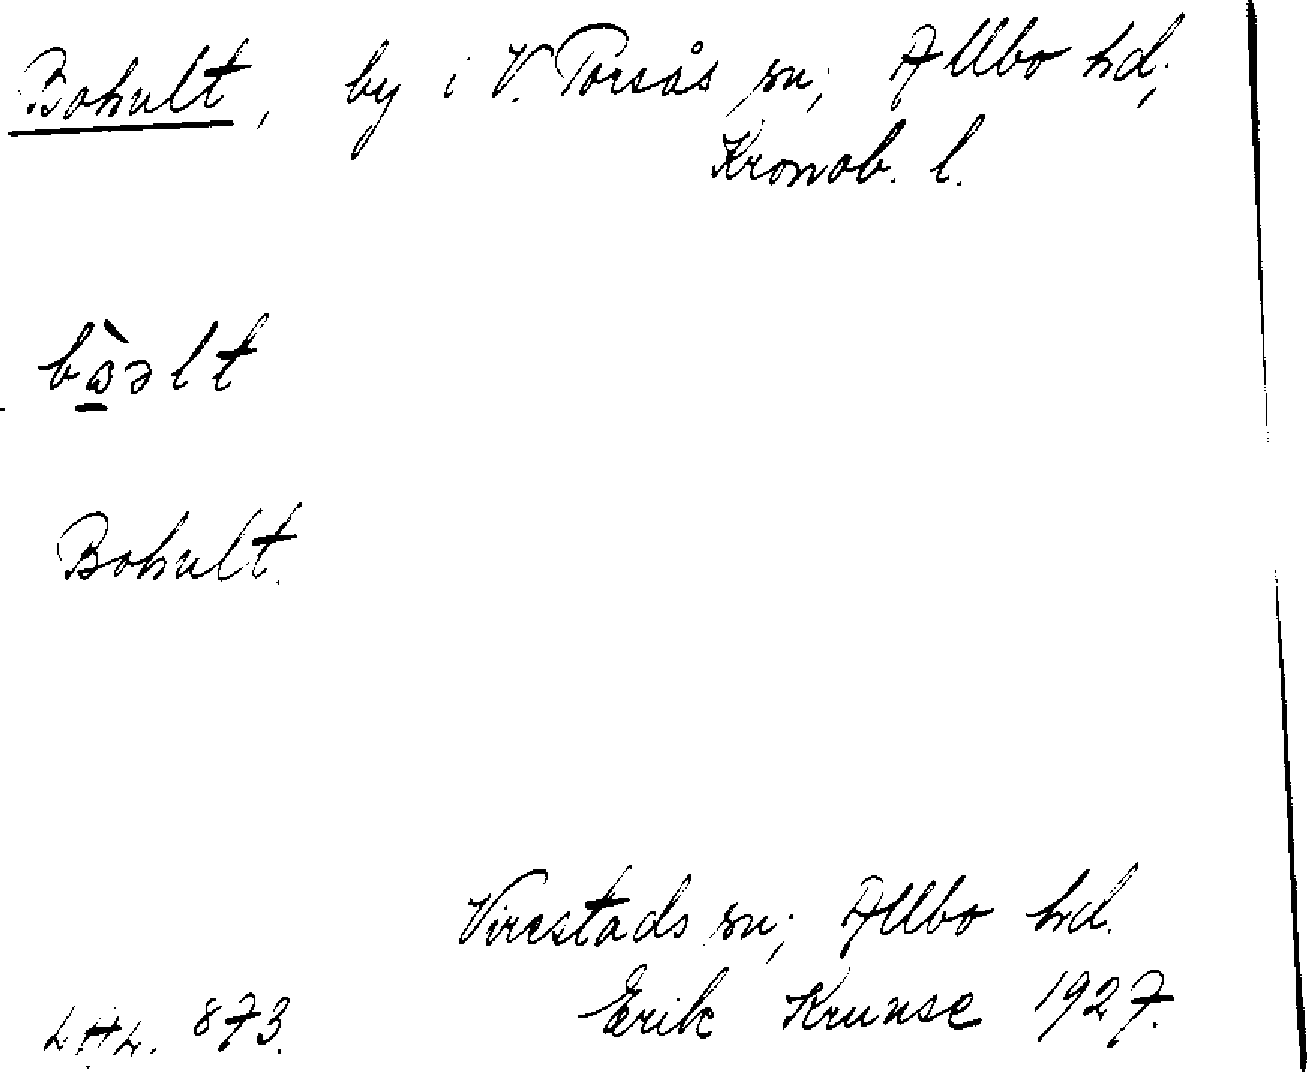 Bohult, by i V. Torsås sn, Allbo hd,
Kronob. l.
bò̱əlt
Bohult.
Virestads sn, Allbo hd.
Erik Kruuse 1927.
873.